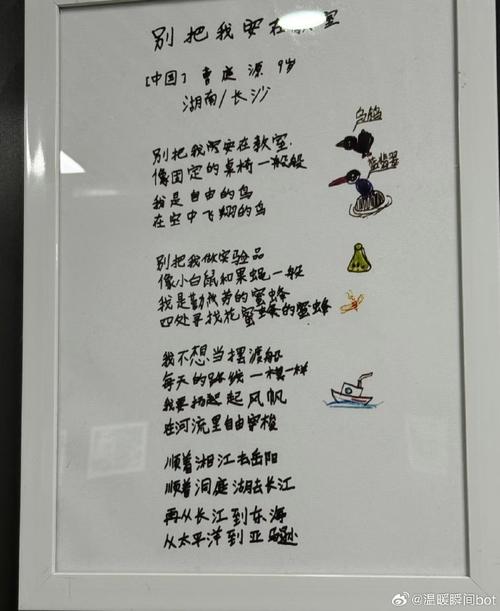 别把我安在教室
[中国] 曹庭源 9岁
湖南/长沙
乌鸫
别把我安在教室
蓝翡翠
像固定的桌椅一般般
我是自由的鸟
在空中飞翔的鸟
别把我做实验品
像小白鼠和果蝇一般
我是勤劳的蜜蜂
四处寻找花蜜的蜜蜂
我不想当摆渡船
每天的路线一模一样
我要扬起风帆
在河流里自由穿梭
顺着湘江去岳阳
顺着洞庭湖去长江
再从长江到东海
从太平洋到亚马逊
@温暖瞬间bot